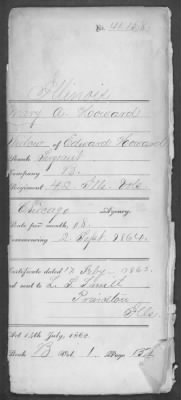 No. 41,158
Illinois
Mary A. Howard
Widow of Edward Howard
Rank Sergeant
Company B.
Regiment 42 Ills Vols
Chicago Agency.
Rate per month, $8.
Commencing 2 Sept. 1864.
Certificate dated 17 Feby 1865.
and sent to L. L. Small
Princeton
Ills.
Act 14th July, 1862.
Book B Vol. 1 Page 156